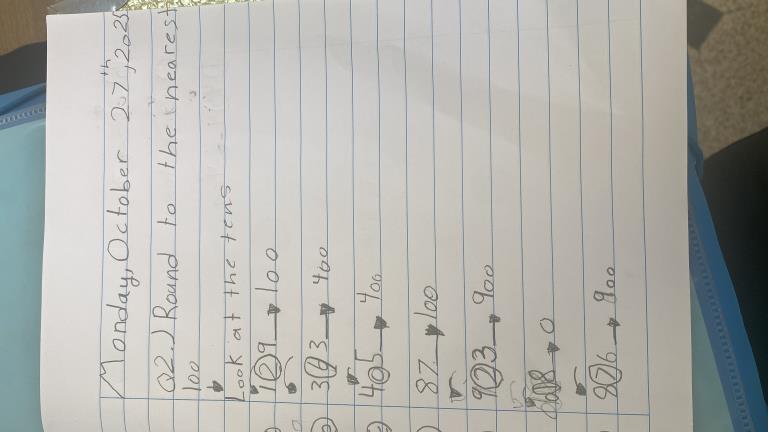 Monday, October 27th, 2025
Q2.) Round to the nearest
100
Look at the tens
129 → 100
3 3 → 400
405 → 400
87 → 100
923 → 900
→ 0
876 → 900